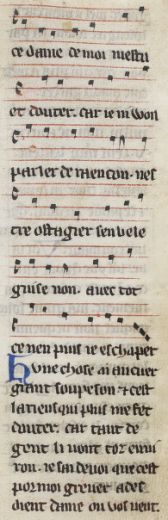 ce dame de moi mestu
et douter. car ie ni voil
parler de raencon. nes
tre ostagier se nule
guise non. avec tot
ce nen puis ie eschaper
Vne chose ai en cuer
grant soupecon & cest
la riens qui plus me fet
douter. car tant de
gent li vont tor enui
ron. ie sai de voi que cest
por moi grever ades
dient dame on vos veut